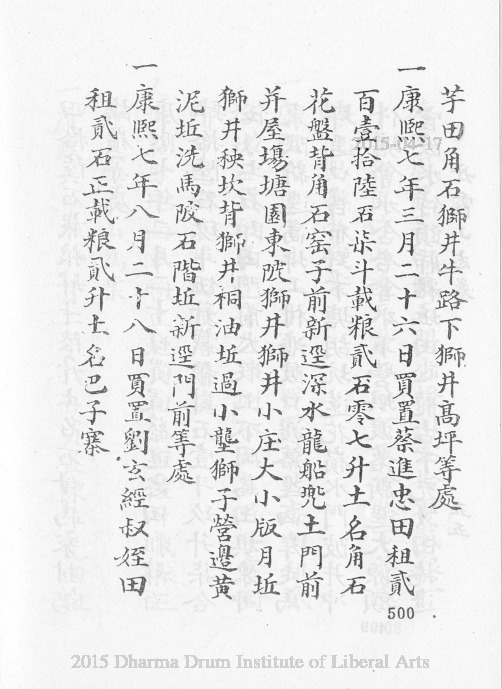 芋田角石獅井牛路下獅井高坪等處
一康熙七年三月二十六日買置蔡進忠田租貳
百壹拾陸石柒斗載粮貳石零七升土名角石
花盤背角石窑子前新逕深水龍船兜土門前
井屋塲塘園東陂獅井獅井小庄大小版月坵
獅井秧坎背獅井桐油坵過小壟獅子營邊黄
泥坵洗馬陂石階坵新逕門前等處
一康熙七年八月二十八日買置劉玄經叔姪田
租貳石正載粮貳升土名巴子寨
2015-04-17
500
2015 Dharma Drum Institute of Liberal Arts